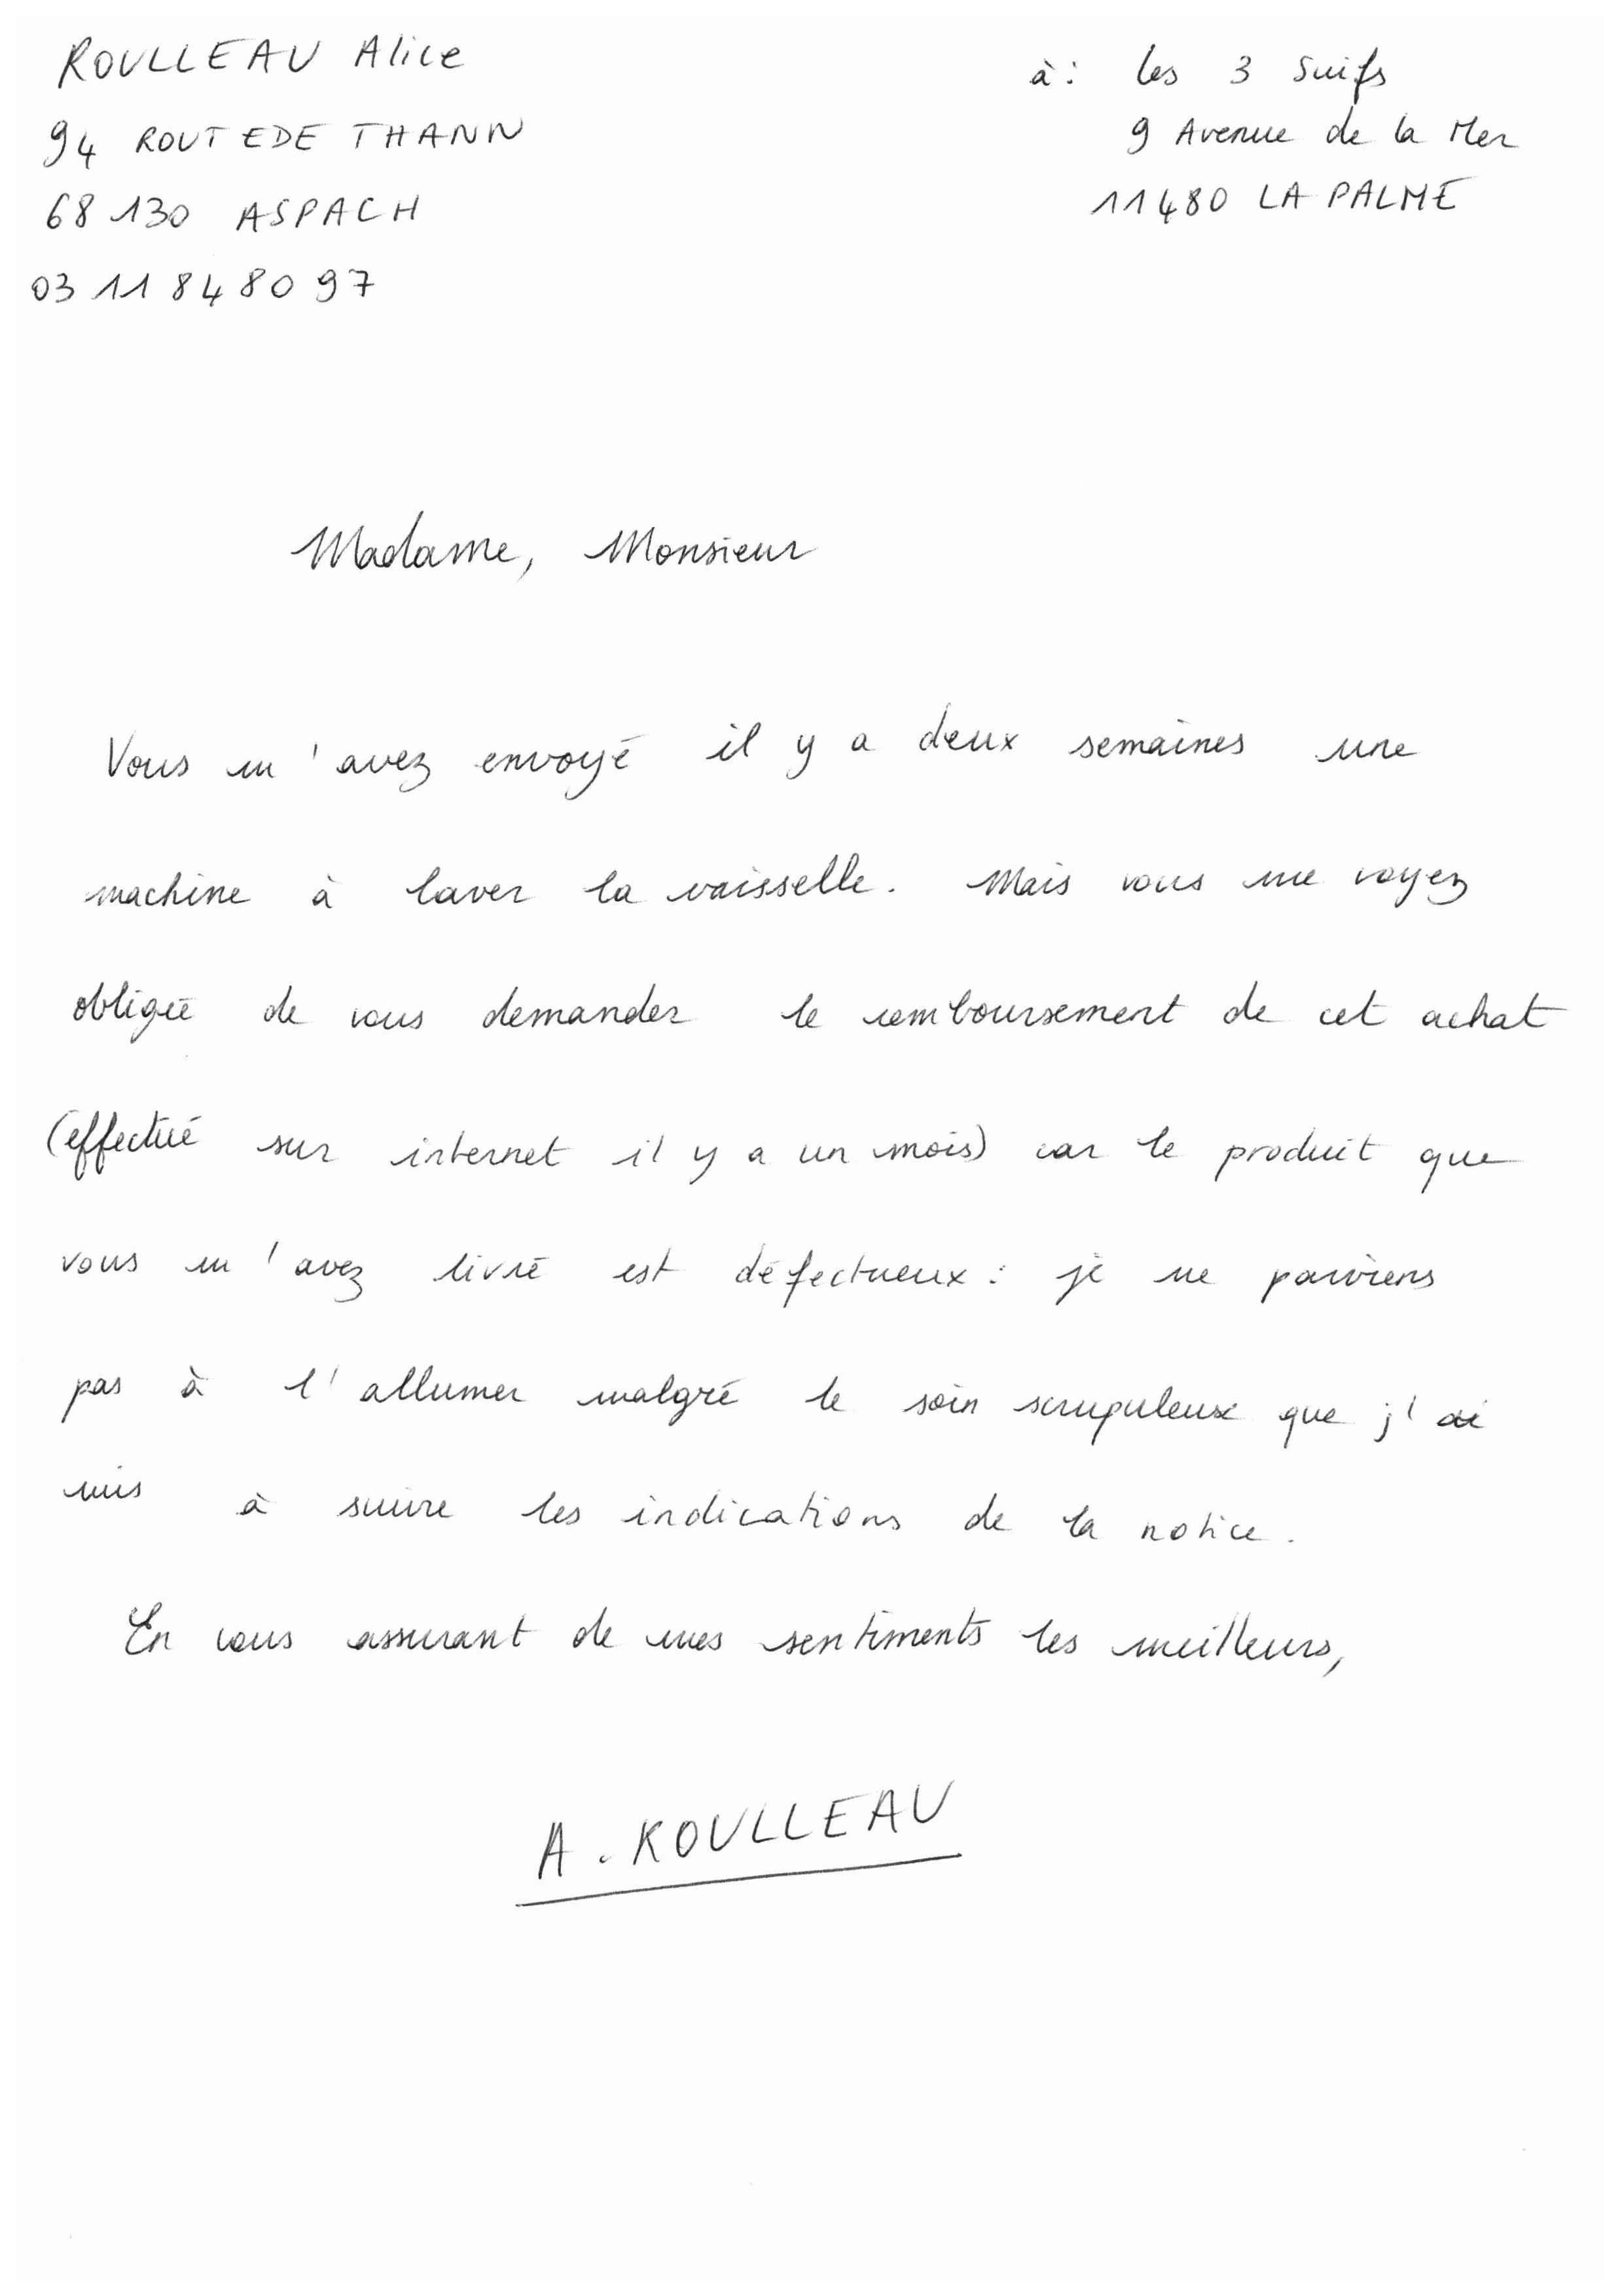 ROULLEAU Alice
94 ROUTEDE THANN
68 130 ASPACH
03 11 84 80 97
à : les 3 Suifs
9 Avenue de la Mer
11480 LA PALME
Madame, Monsieur
Vous m'avez envoyé il y a deux semaines une
machine à laver la vaisselle. Mais vous me voyez
obligée de vous demander le remboursement de cet achat
(effectué sur internet il y a un mois) car le produit que
vous m'avez livré est défectueux : je ne parviens
pas à l'allumer malgré le soin scrupuleux que j'ai
mis à suivre les indications de la notice.
En vous assurant de mes sentiments les meilleurs,
A. ROULLEAU